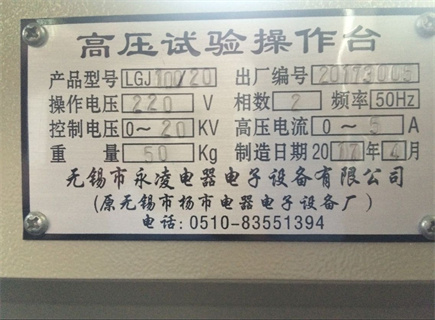 高压试验操作台
产品型号 LGJ100/20 出厂编号 2017300
操作电压 220 V 相数 2 频率 50Hz
控制电压 0~20 KV 高压电流 0~5 A
重量 50 Kg 制造日期 2017年4月
无锡市永凌电器电子设备有限公司
(原无锡市杨市电器电子设备厂)
电话:0510-83551394